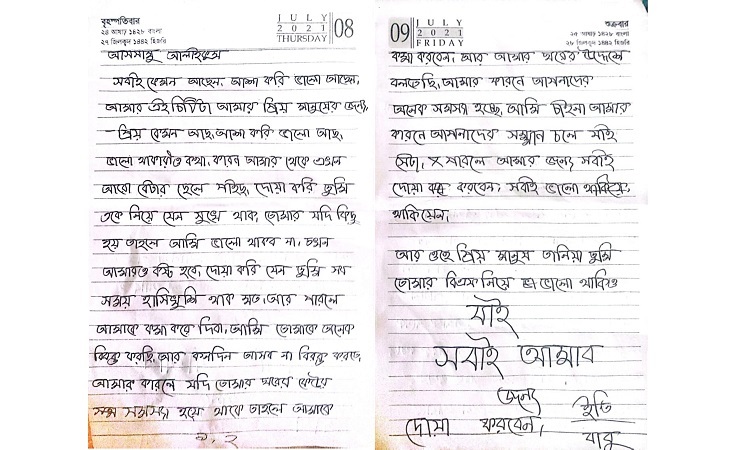 বৃহস্পতিবার
২৪ আষাঢ় ১৪২৮ বাংলা
২৭ জিলক্বদ ১৪৪২ হিজরি
JULY
2021
THURSDAY
08
আসসামু আলাইকুম
সবাই কেমন আছেন, আশা করি ভালো আছেন,
আমার এই চিঠিটা আমার প্রিয় মানুষের জন্যে,
প্রিয় কেমন আছ, আশা করি ভালো আছ,
ভালো থাকারাও কথা, কারন আমার থেকে এখন
আরো বেটার ছেলে পাইছ, দোয়া করি তুমি
ওকে নিয়ে যেন সুখে থাক, তোমার যদি কিছু
হয় তাহলে আমি ভালো থাকব না, তখন
আমারও কষ্ট হবে, দোয়া করি যেন তুমি সব
সময় হাসিখুশি থাক মত, আর পারলে
আমাকে ক্ষমা করে দিবা, আমি তোমাকে অনেক
বিরক্ত করছি, আর কনদিন আসব না বিরক্ত করতে,
আমার কারনে যদি তোমার ঘরের কেউর
সমসা হয়ে থাকে তাহলে আমাকে
09
JULY
2021
FRIDAY
শুক্রবার
২৫ আষাঢ় ১৪২৮ বাংলা
২৮ জিলক্বদ ১৪৪২ হিজরি
ক্ষমা করবেন, আর আমার ঘরের উদ্দেশে
বলতেছি, আমার কারনে আপনাদের
অনেক সমসসা হচ্ছে, আমি চাইনা আমার
কারনে আপনাদের সম্মান চলে যাই
সেটা, পারলে আমার জন্যে সবাই
দোয়া করবেন, সবাই ভালো থাকিয়ে,
থাকিয়েন,
আর ওহে প্রিয় মানুষ তানিয়া তুমি
তোমার বিএফ নিয়ে ভালো থাকিও
যাই
সবাই আমার
জন্যে
দোয়া করবেন,
ইতি
বাবু